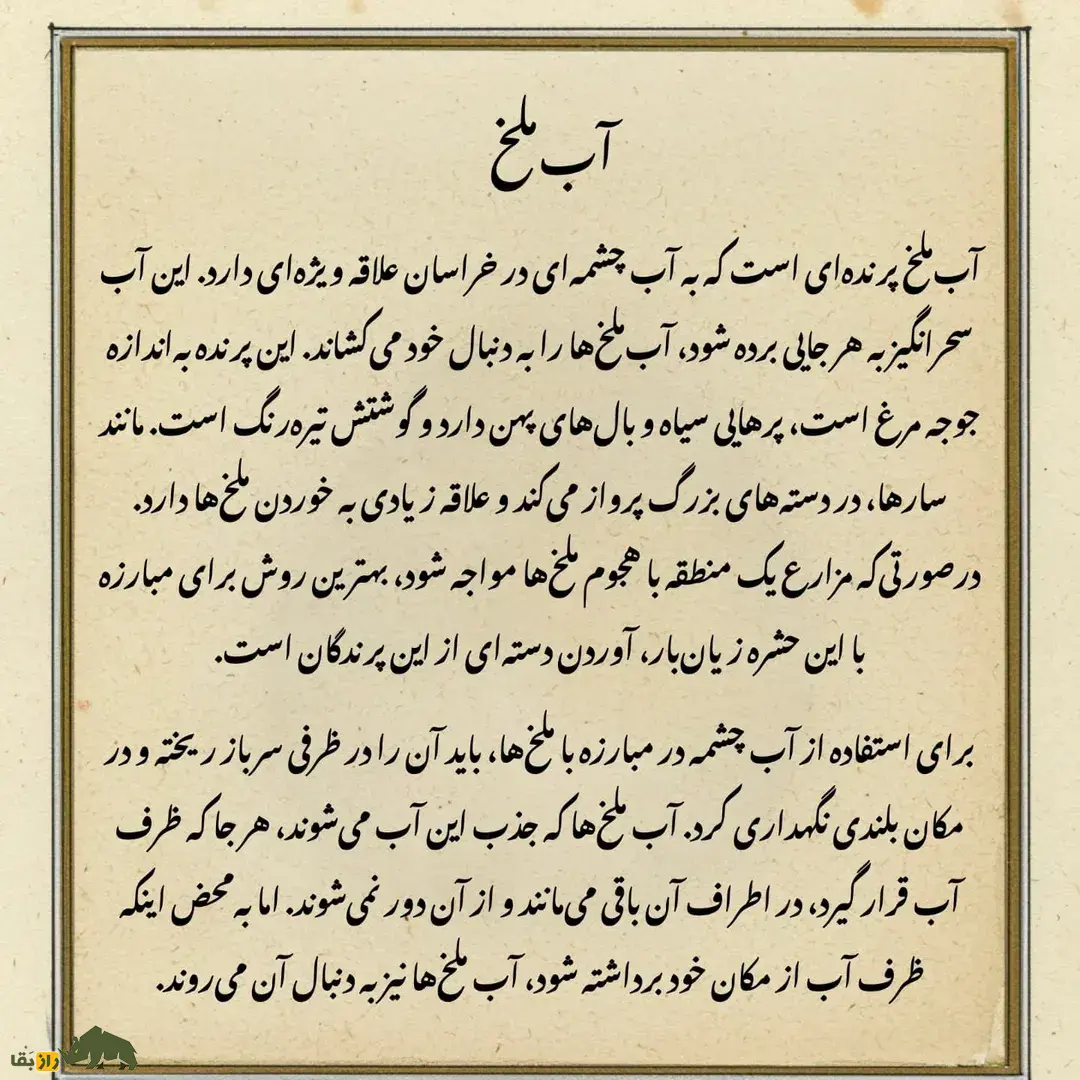 آب ملخ
آب ملخ پرنده‌ای است که به آب چشمه‌ای در خراسان علاقه ویژه‌ای دارد. این آب
سحرانگیز به هر جایی برده شود، آب ملخ‌ها را به دنبال خود می‌کشاند. این پرنده به اندازه
جوجه مرغ است، پرهایی سیاه و بال‌های پهن دارد و گوشتش تیره‌رنگ است. مانند
سارها، در دسته‌های بزرگ پرواز می‌کند و علاقه زیادی به خوردن ملخ‌ها دارد.
در صورتی که مزارع یک منطقه با هجوم ملخ‌ها مواجه شود، بهترین روش برای مبارزه
با این حشره زیان‌بار، آوردن دسته‌ای از این پرندگان است.
برای استفاده از آب چشمه در مبارزه با ملخ‌ها، باید آن را در ظرفی سرباز ریخته و در
مکان بلندی نگهداری کرد. آب ملخ‌ها که جذب این آب می‌شوند، هر جا که ظرف
آب قرار گیرد، در اطراف آن باقی می‌مانند و از آن دور نمی‌شوند. اما به محض اینکه
ظرف آب از مکان خود برداشته شود، آب ملخ‌ها نیز به دنبال آن می‌روند.
راز بقا